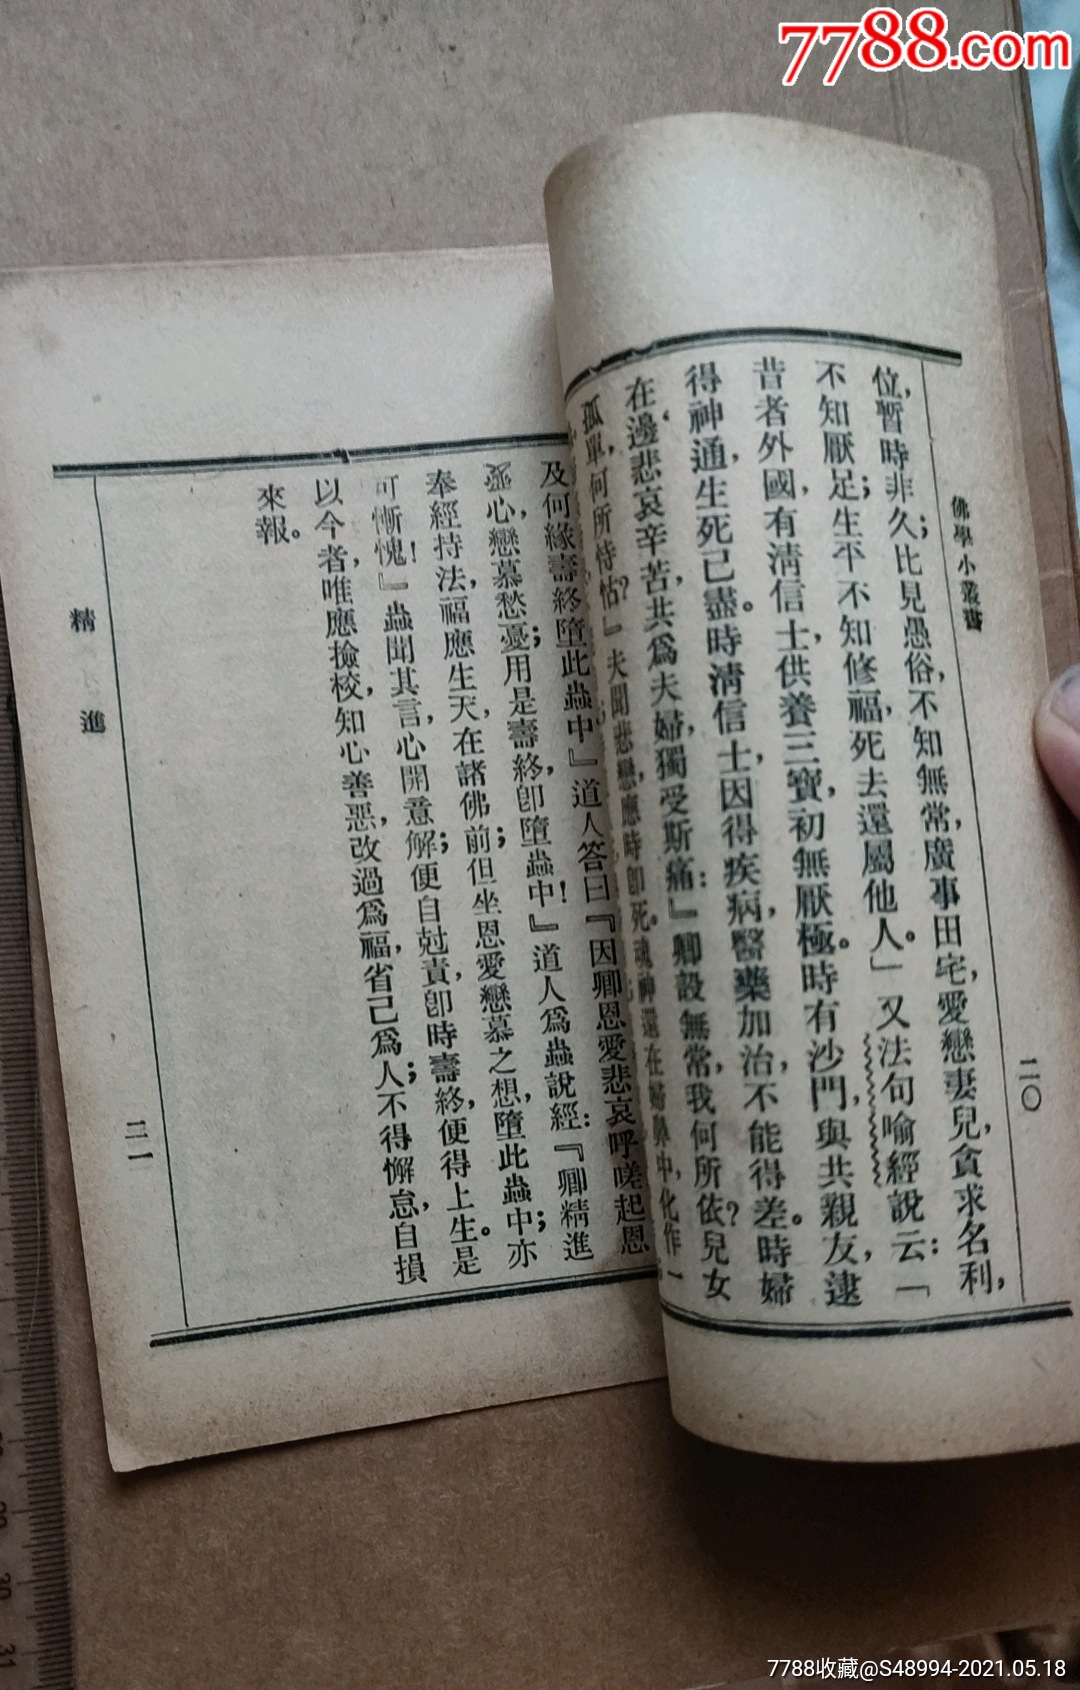 7788.com
佛學小叢書
二〇
位，暫時非久；比見愚俗，不知無常，廣事田宅，愛戀妻兒，貪求名利，
不知厭足；生平不知修福，死去還屬他人。」又法句喻經說云：「
昔者外國，有清信士，供養三寶，初無厭極。時有沙門，與共親友，逮
得神通，生死已盡。時清信士，因得疾病，醫藥加治，不能得差。時婦
在邊，悲哀辛苦，共爲夫婦，獨受斯痛：『卿設無常，我何所依？兒女
孤單，何所恃怙？』夫聞悲戀，應時卽死。魂神還在婦鼻中，化作一
及何緣壽終墮此蟲中』道人答曰『因卿恩愛悲哀呼嗟起恩
愛心，戀慕愁憂；用是壽終，卽墮蟲中！』道人爲蟲說經：『卿精進
奉經持法，福應生天，在諸佛前；但坐恩愛戀慕之想，墮此蟲中；亦
可慚愧！』蟲聞其言，心開意解；便自尅責，卽時壽終，便得上生。是
以今者，唯應撿校，知心善惡，改過爲福，省己爲人；不得懈怠，自損
來報。
精進
二一
7788收藏@S48994-2021.05.18